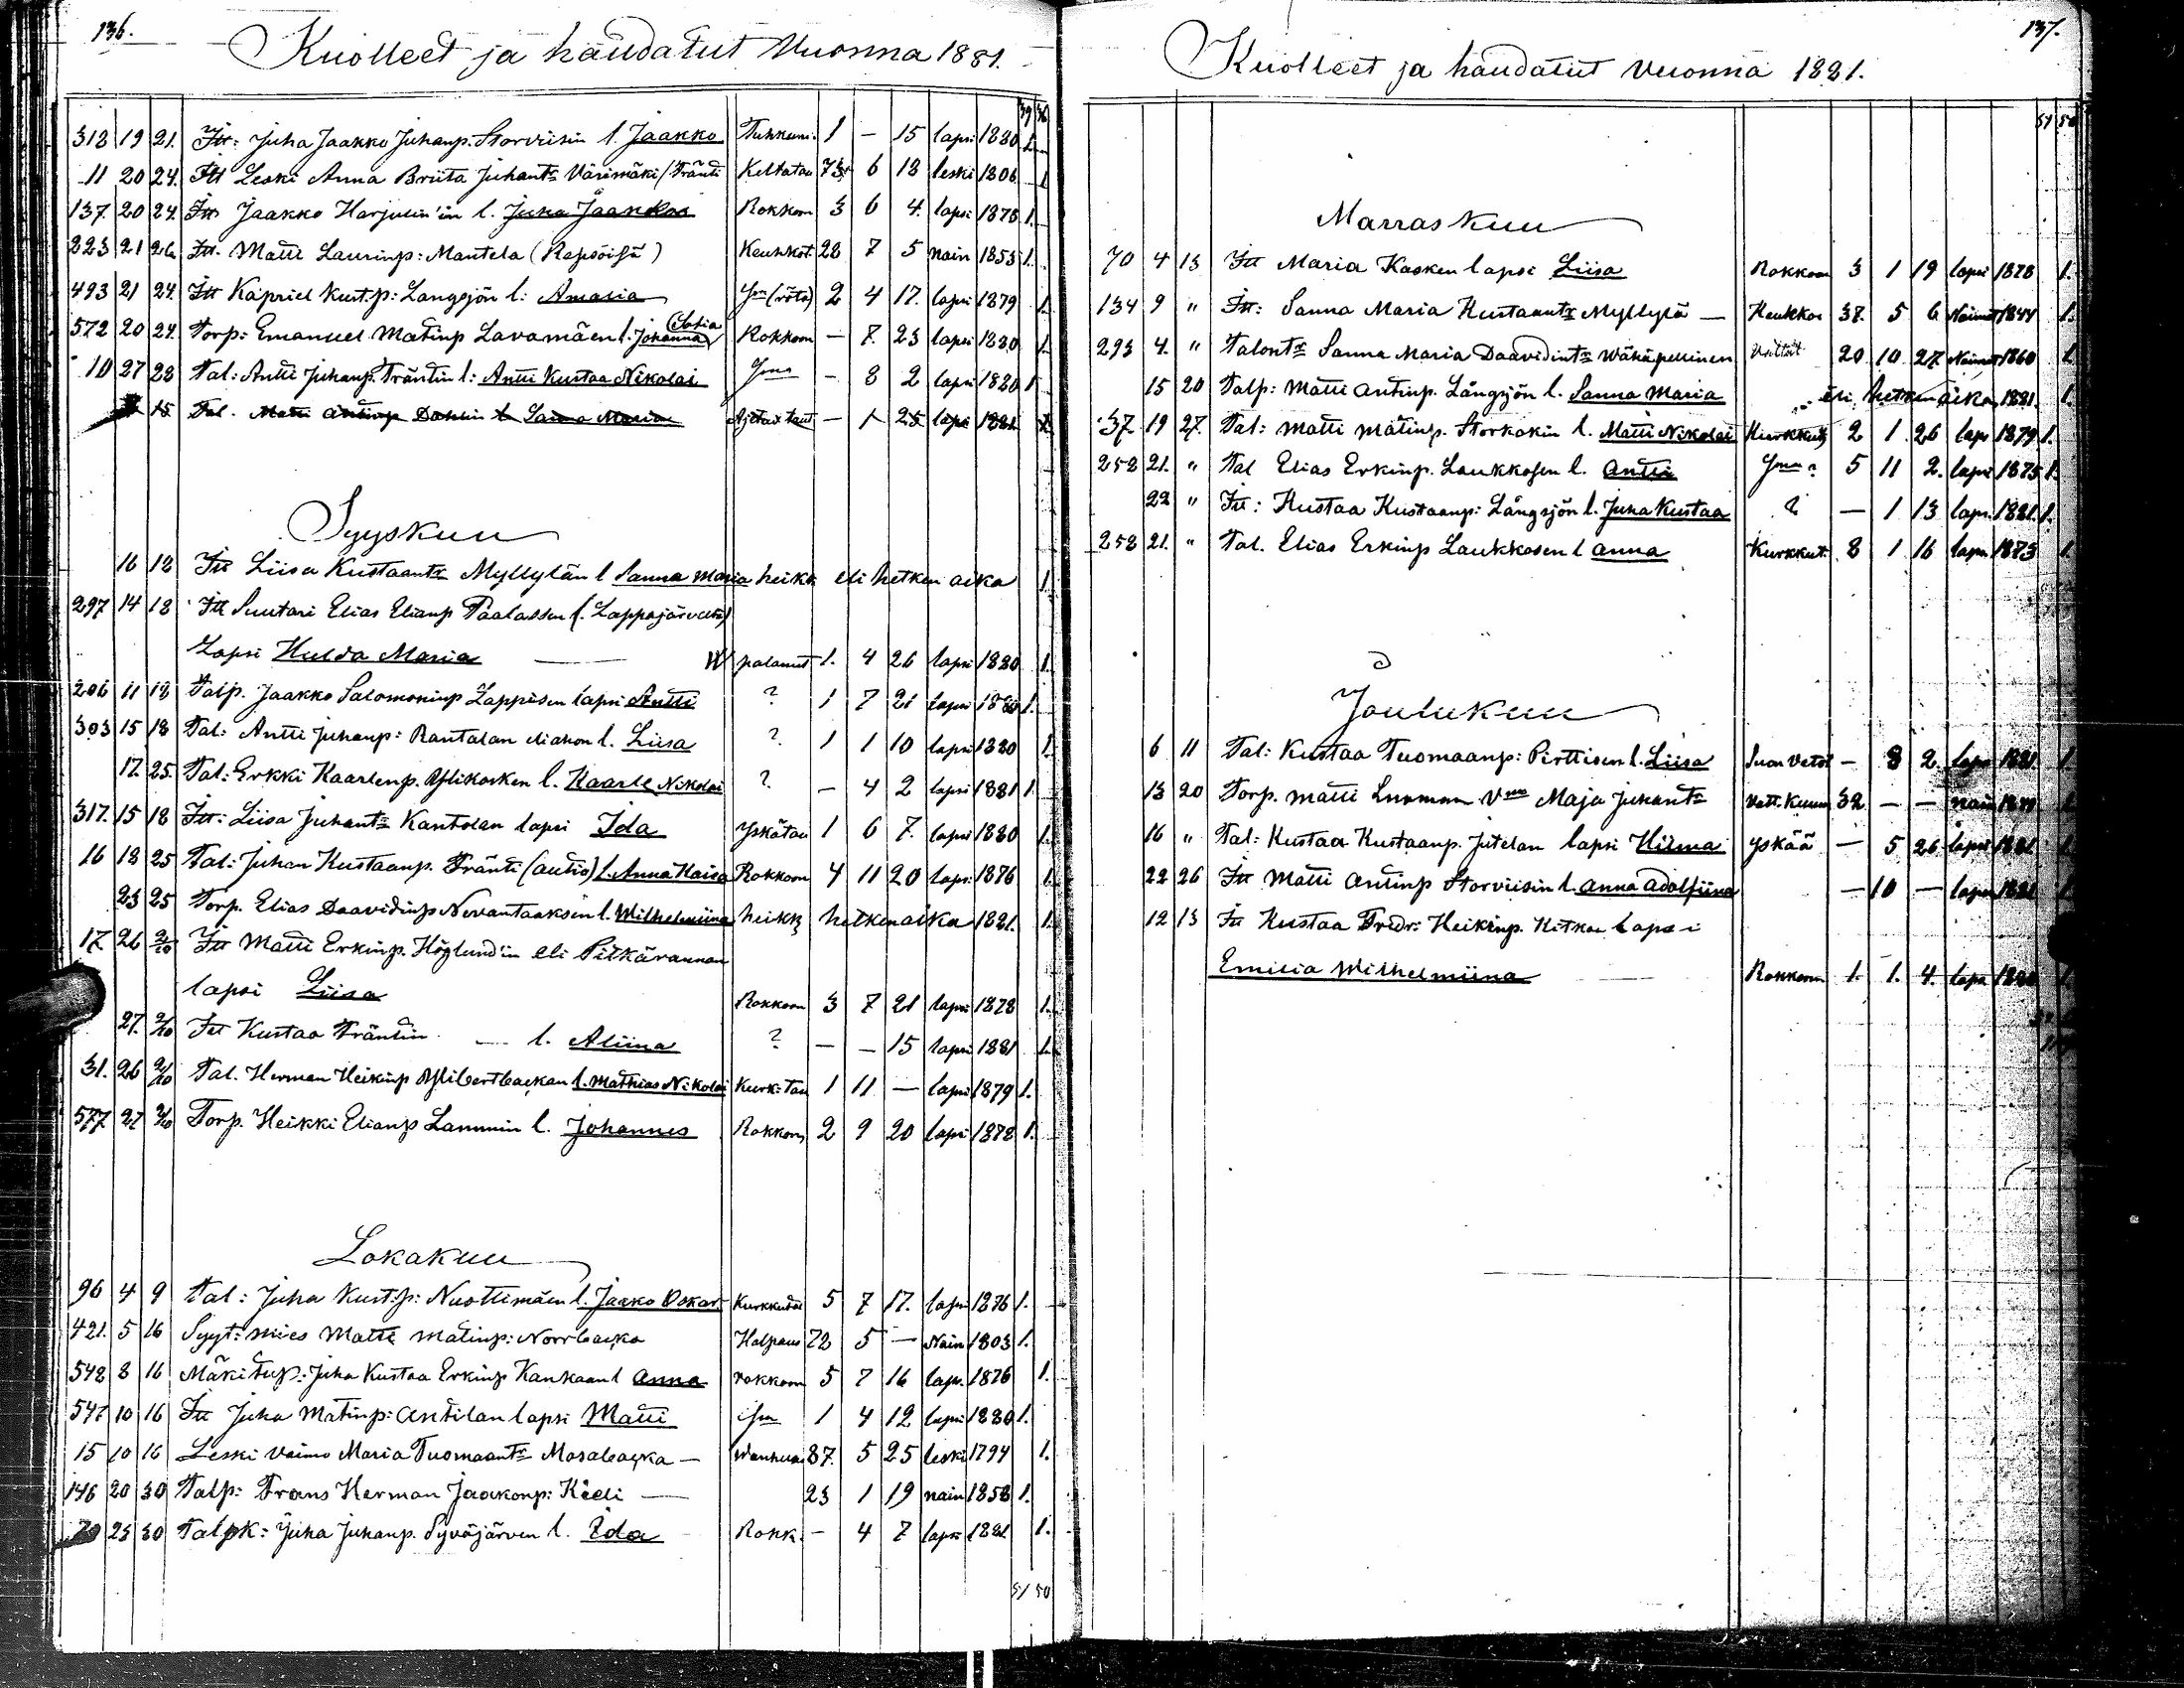 136.
Kuolleet ja haudatut Vuonna 1881.
39 36
318 19 21. Itt: Juha Jaakko Juhanp. Storviisin l. Jaakko Tuhkuri. 1 — 15 lapsi 1880 1.
11 20 24. Itt Leski Anna Briita Juhant: Värimäki / Tränti Keltatau 75 6 18 leski 1806 1
137. 20 24. Itt Jaakko Harjulin'in l. Juha Jaakko Rokkoon 3 6 4. lapsi 1878 1.
223 21 26 Itt. Matti Laurinp: Mantela (Kapsöissä) Keuhkot. 28 7 5 nain 1853 1.
493 21 24. Itt Kapriel Kust.p: Langsjön l: Amalia Sm (rötö) 2 4 17. lapsi 1879 1.
572 20 24. Torp: Emanuel Matinp Lavamäen l. Johanna Sofia Rokkoon — 7. 23 lapsi 1880 1.
10 27 28 Tal: Antti Juhanp. Träntin l: Antti Kustaa Nikolai Sama — 8 2 lapsi 1880 1
15 Tal. Matti Antinp Dahlin l. Sanna Maria Ajettavataut — 1 25 lapsi 1881 1
Syyskuu
16 18 Itt Liisa Kustaant: Myllylän l Sanna Maria heikk eli hetken aika 1.
297 14 18 Itt Suutari Elias Elianp Paalassen (Lappajärveltä)
Lapsi Hulda Maria — palanut 1. 4 26 lapsi 1880 1.
206 11 18 Talp. Jaakko Salomoninp Lappisen lapsi Antti ? 1 7 21 lapsi 1880 1.
303 15 18 Tal: Antti Juhanp: Rantalan eliahon l. Liisa ? 1 1 10 lapsi 1880 1.
17. 25. Tal: Erkki Kaarlenp. Ylikosken l. Kaarle Nikolai ? — 4 2 lapsi 1881 1
317. 15 18 Itt: Liisa Juhant: Kantolan lapsi Ida Yskätau 1 6 7. lapsi 1880 1.
16 18 25 Tal: Juhan Kustaanp. Tränti (autio) l. Anna Kaisa Rokkoon 4 11 20 laps. 1876 1.
23 25 Torp. Elias Daavidinp Nevantaaksen l. Wilhelmiina heikk hetken aika 1881. 1.
17. 26 2/10 Itt Matti Erkinp. Höglund'in eli Pitkärannan
lapsi Liisa Rokkoon 3 7 21 lapsi 1878 1.
27. 2/10 Itt Kustaa Träntin — l. Aliina ? — — 15 lapsi 1881 1.
31. 26 2/10 Tal. Herman Heikinp Ylibertbackan l. Mathias Nikolai Kurk: Tau 1 11 — lapsi 1879 1.
577 27 2/10 Torp. Heikki Elianp Lammin l. Johannes Rokkoon 2 9 20 lapsi 1878 1.
Lokakuu
96 4 9 Tal: Juha Kust.p: Nuottimäen l. Jaako Oskar Kurkkuta 5 7 17. lapsi 1876 1.
421. 5 16 Syyt: mies Matti Matinp: Norrbacka Halpaus 72 5 — Nain 1803 1.
548 8 16 Mäkitup: Juha Kustaa Erkinp Kankaan l Anna rokkoon 5 7 16 laps. 1876 1.
547 10 16 Itt Juha Matinp: Antilan lapsi Matti Sm 1 4 12 lapsi 1880 1.
15 10 16 Leski vaimo Maria Tuomaant: Mosabacka — Wanhuus 87. 5 25 leski 1794 1.
146 20 30 Talp: Frans Herman Jaakonp: Kieli — 23 1 19 nain 1858 1.
70 23 30 Talpk: Juha Juhanp. Syväjärven l. Ida Rokk. — 4 7 lapsi 1881 1.
51 50
137.
Kuolleet ja haudatut vuonna 1881.
51 50
Marraskuu
70 4 13 Itt Maria Kasken lapsi Liisa Rokkoon 3 1 19 lapsi 1878 1.
134 9 " Itt: Sanna Maria Kustaant: Myllylä — Keuhkot 37. 5 6 Naimat 1844 1.
293 4. " Talont: Sanna Maria Daavidint: Wähäpellinen 20 10 27. Naimat 1860 1
15 20 Talp: Matti Antinp. Långsjön l. Sanna Maria eli hetken aikaa 1881. 1.
37. 19 27. Tal: Matti Matinp. Storkokin l. Matti Nikolai Kurkkut 2 1 26 laps 1879 1.
258 21. " Tal Elias Erkinp. Laukkosen l. Antti Sama 5 11 2. lapsi 1875 1.
22 " Itt: Kustaa Kustaanp: Långsjön l. Juha Kustaa ? — 1 13 laps. 1881. 1.
258 21. " Tal. Elias Erkinp Laukkosen l Anna Kurkkut. 8 1 16 laps. 1873 1.
Joulukuu
6 11 Tal: Kustaa Tuomaanp: Pirttisen l. Liisa Suon vetot — 8 2 lapsi 1881. 1
13 20 Torp. Matti Luoman Vmo Maja Juhant: Vatt. Kuum 32 — — nain 1849 1
16 " Tal: Kustaa Kustaanp. Jutelan lapsi Hilma Yskää — 5 26 lapsi 1881 1
22 26 Itt Matti Antinp Storviisin l. Anna Adolfiina — 10 — lapsi 1881 1
12 13 Itt Kustaa Fredr: Heikinp. Hitkon lapsi
Emilia Wilhelmiina — Rokkoon 1. 1. 4. lapsi 1880 1.